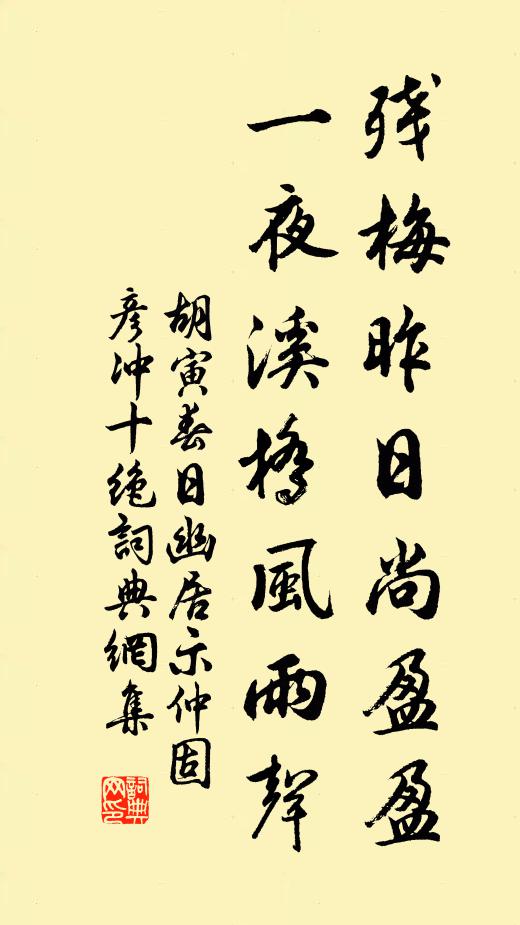 残梅昨日尚盈盈
一夜溪橋風雨聲
胡寅春日幽居示仲固
彦冲十絶詞典網集
詞典網印